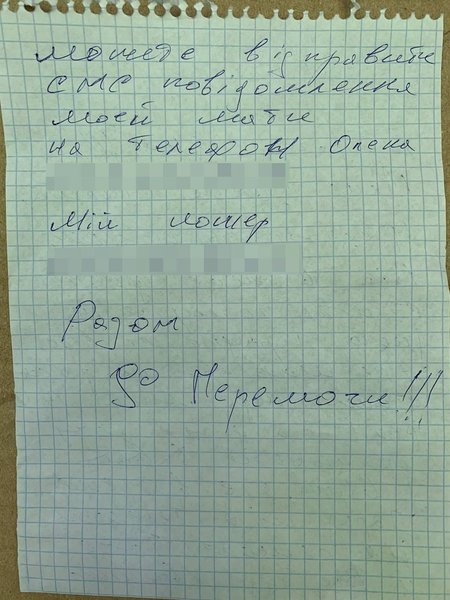 можете відправити
СМС повідомлення
моей мати
на телефон Олена
Мій номер
Разом
до Перемоги!!!